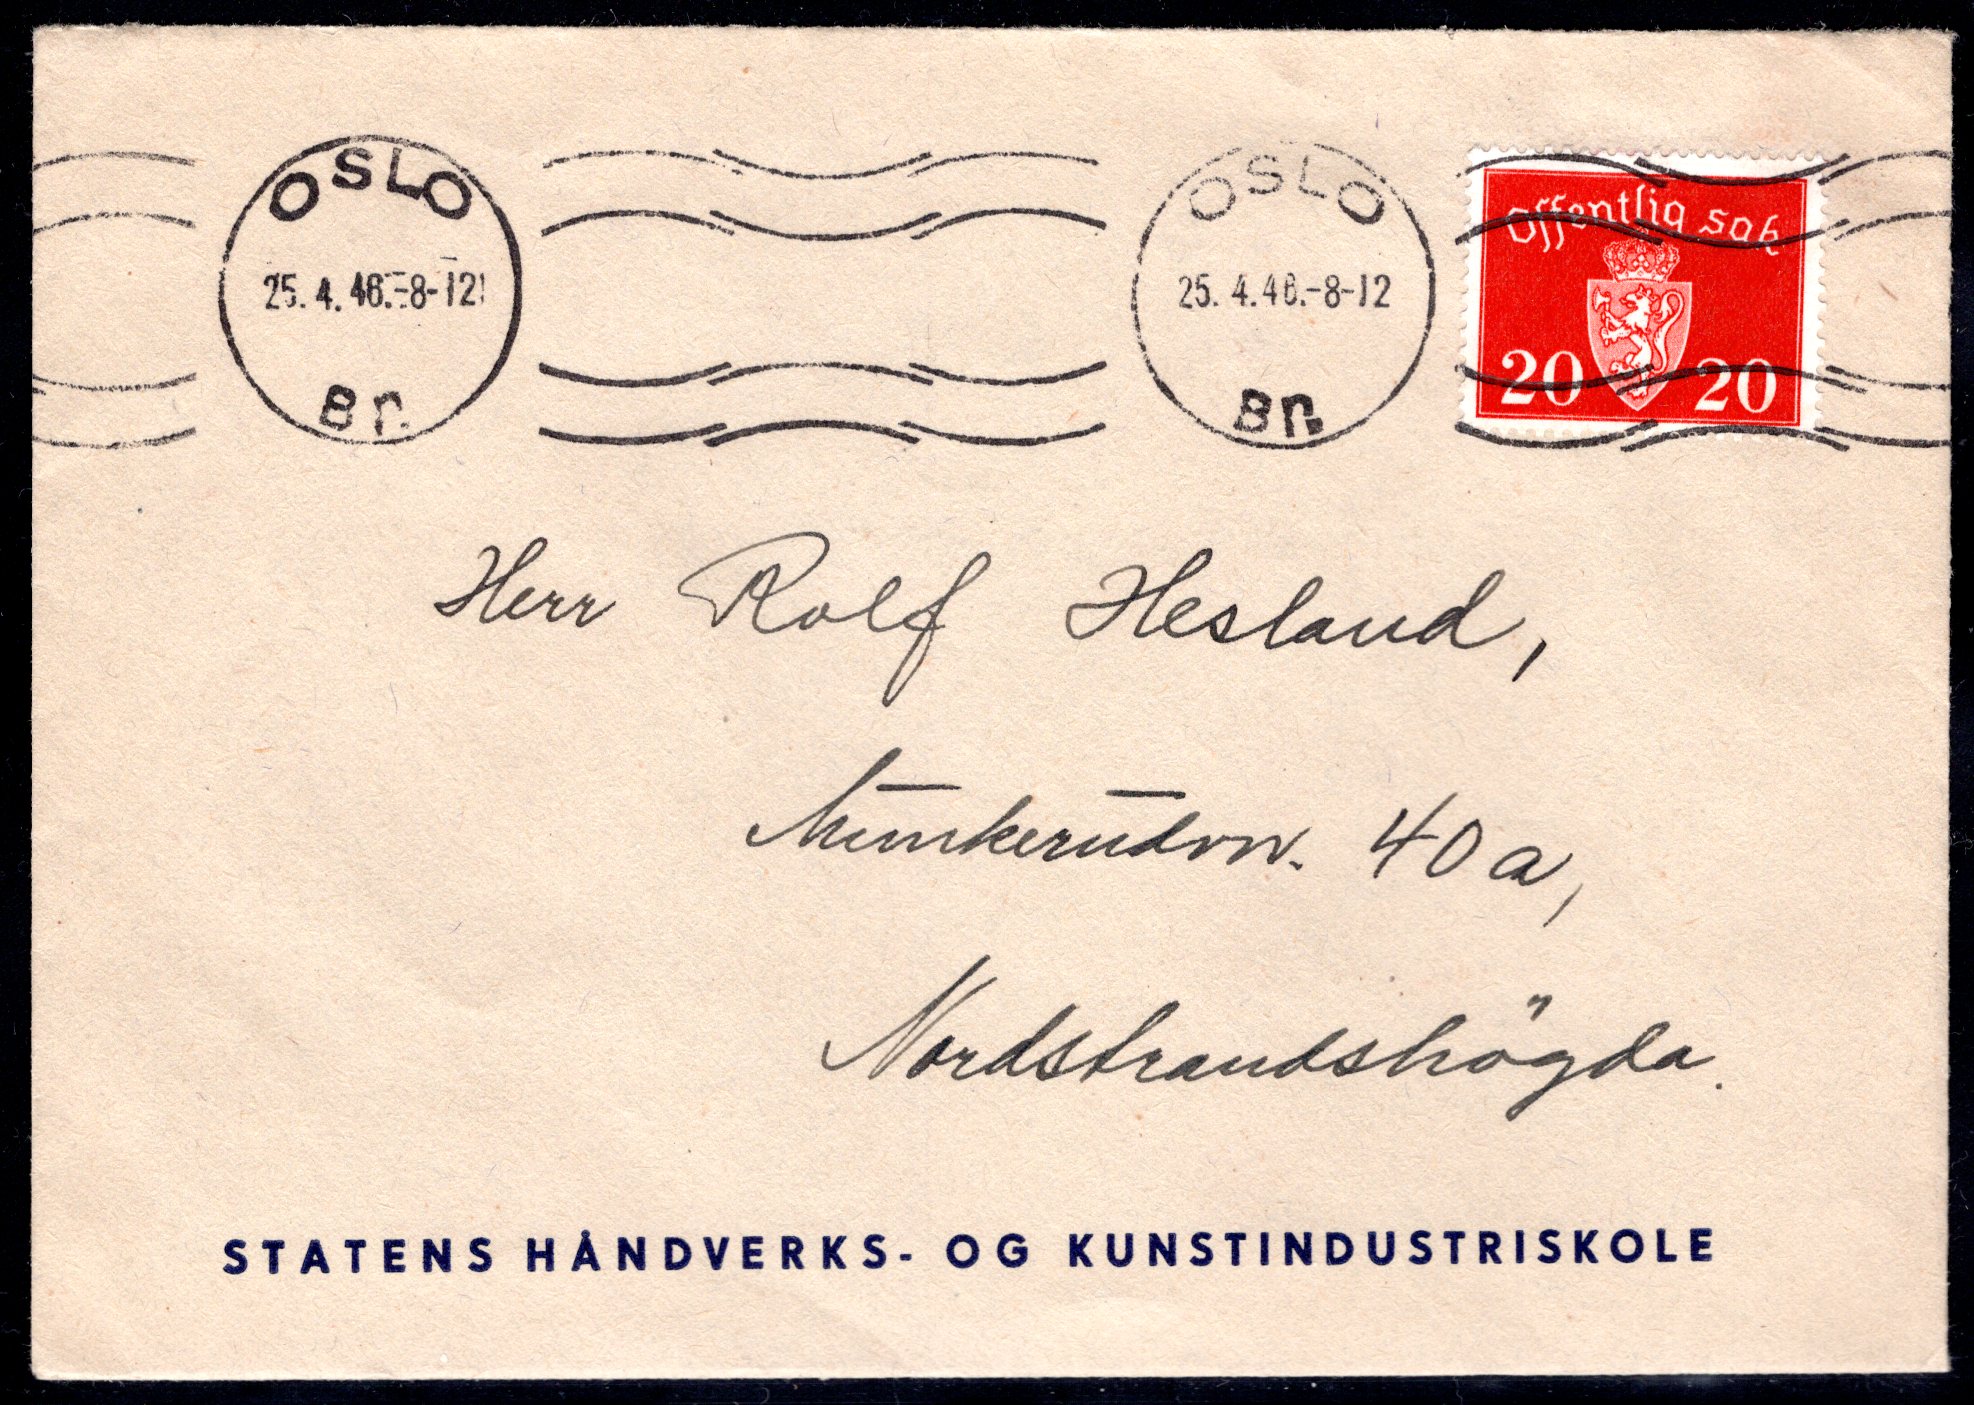 OSLO
25.4.46.-8-12
Br.
OSLO
25.4.46.-8-12
Br.
Offentlig sak
20 20
Herr Rolf Hesland,
Munkerudvn. 40a,
Nordstrandshögda.
STATENS HÅNDVERKS- OG KUNSTINDUSTRISKOLE